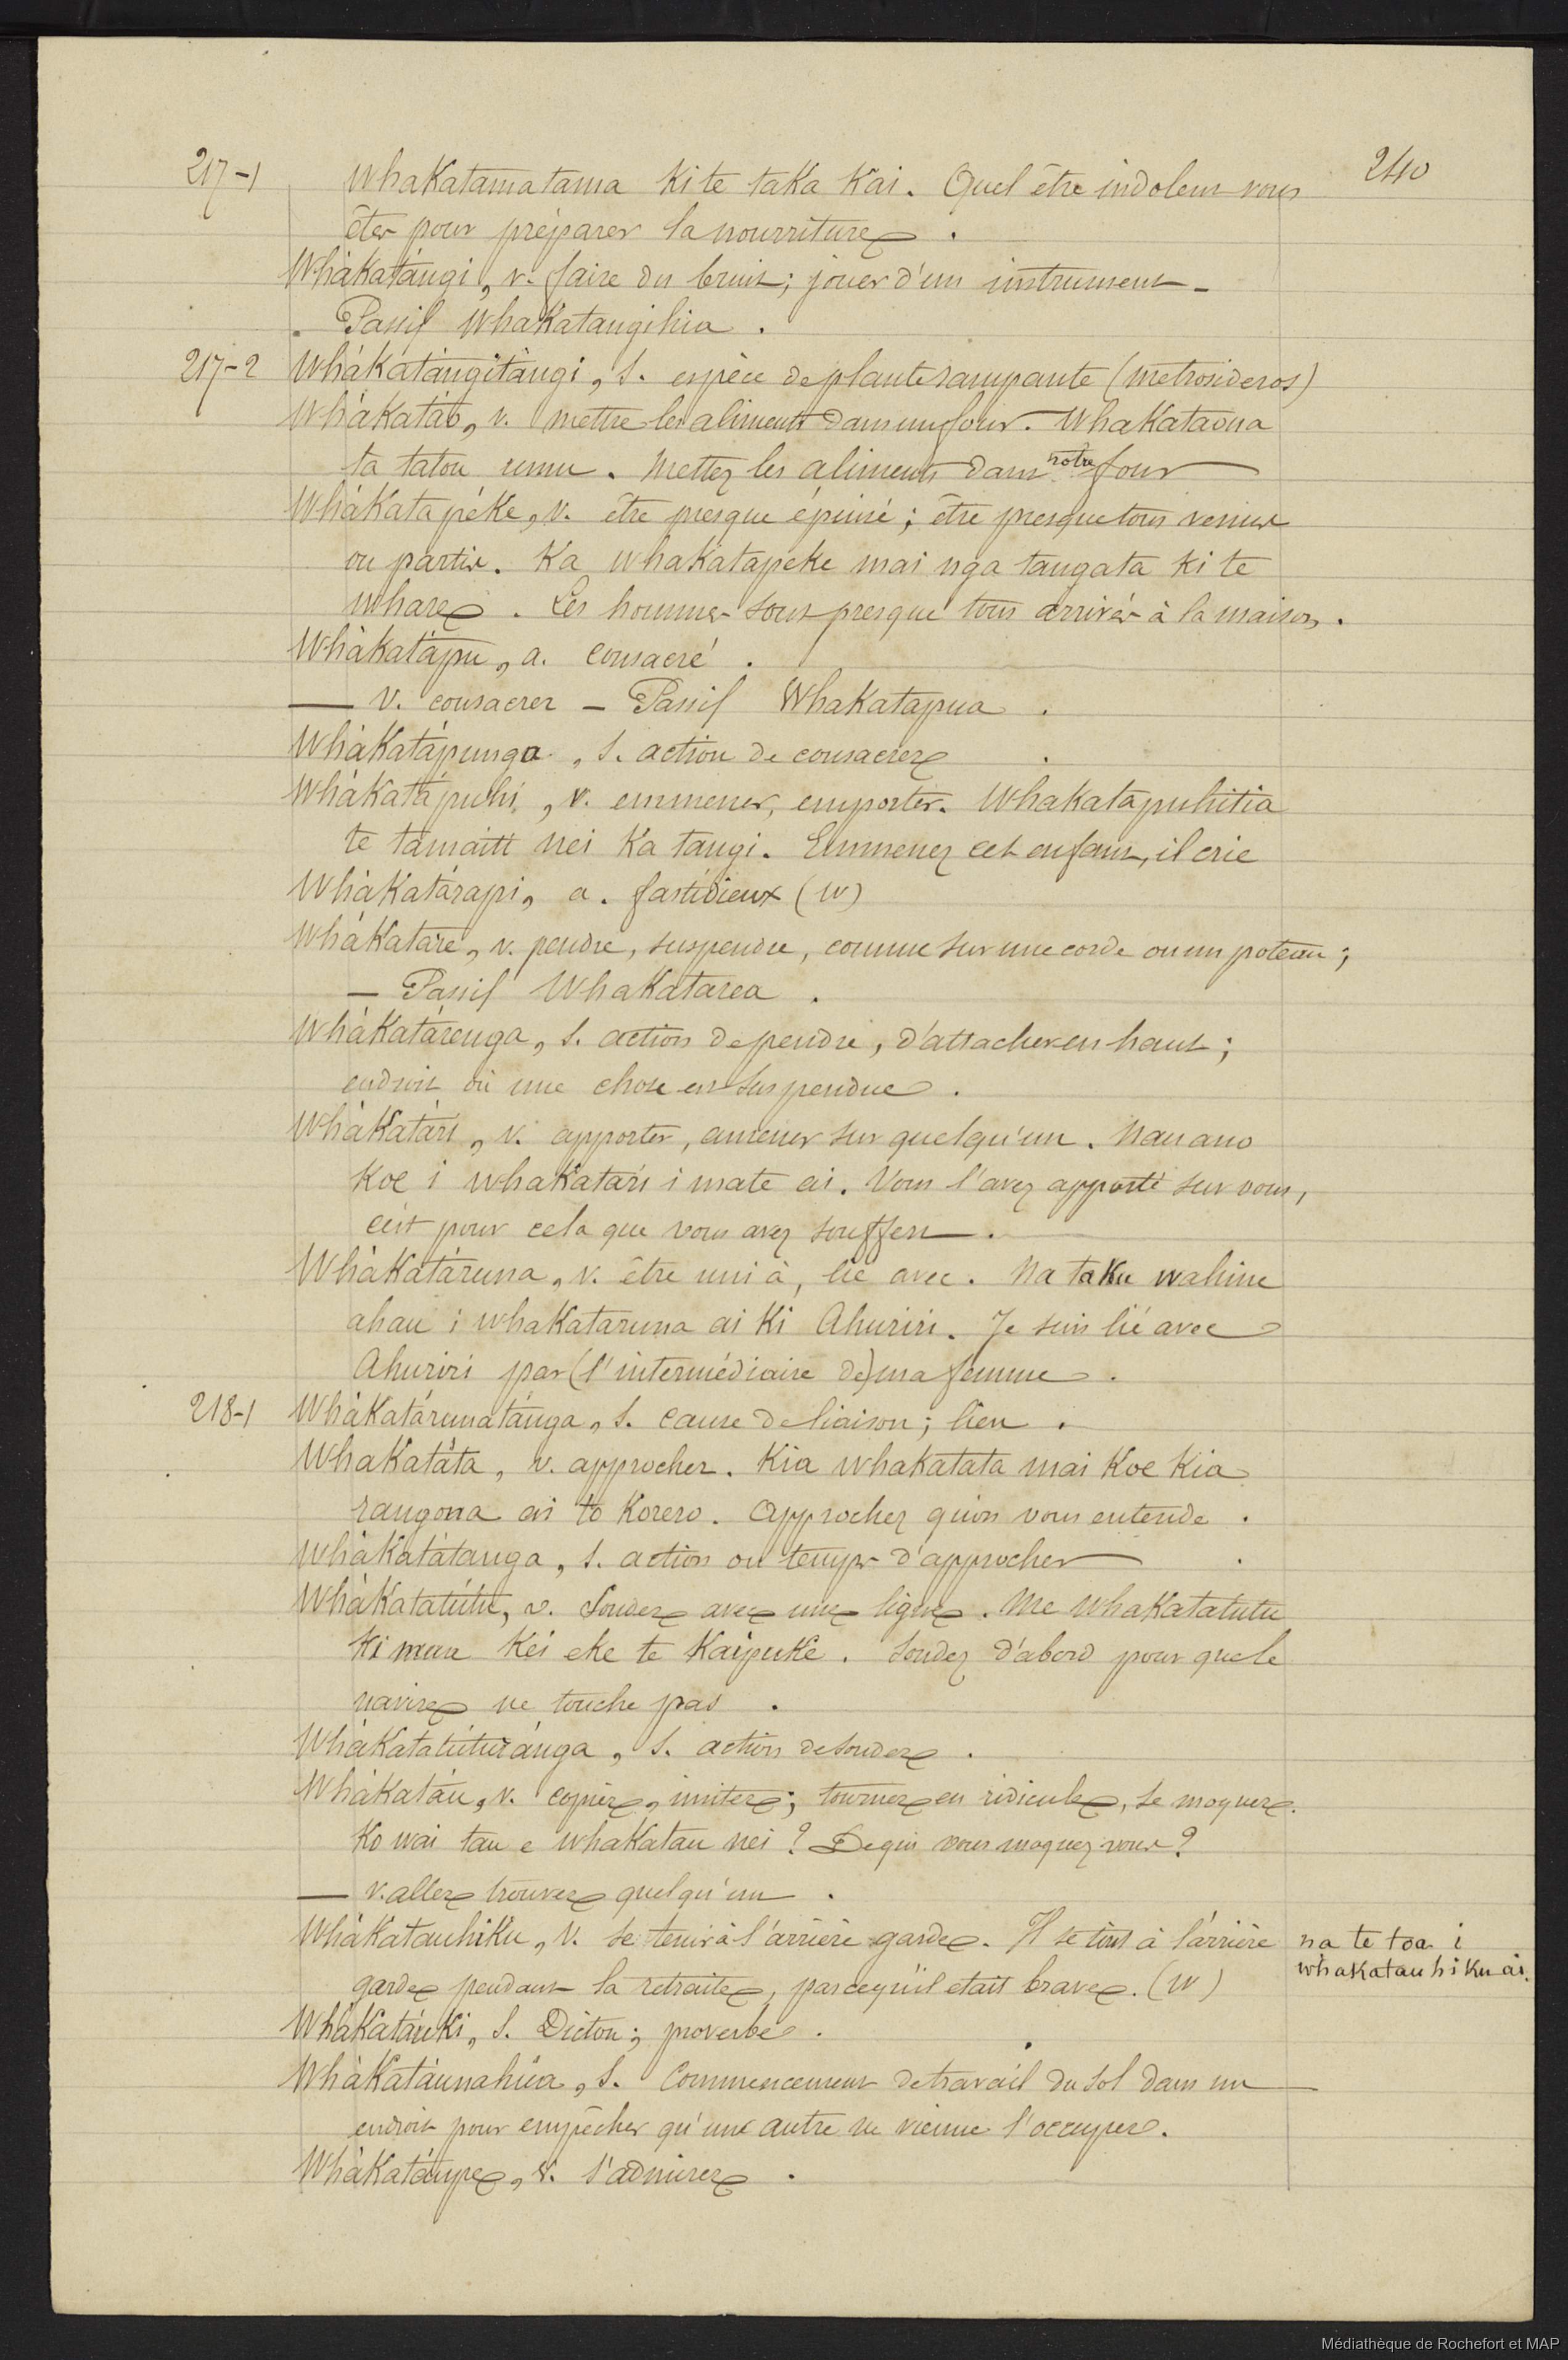 217-1 whakatamatama ki te taka kai. Quel être indolent vous 240
êtes pour préparer la nourriture.
Whàkatángi, v. faire du bruit; jouer d'un instrument –
Passif whakatangihia.
217-2 Whàkátàngitàngi, s. espèce de plante rampante (metrosideros)
Whàkatáo, v. mettre les aliments dans un four. Whakataona
ta tatou umu. Mettez les aliments dans notre four
Whàkatapéke, v. être presque épuisé; être presque tous venus
ou partis. Ka whakatapeke mai nga tangata ki te
whare. Les hommes sont presque tous arrivés à la maison.
Whàkatápu, a. consacré.
— v. consacrer – Passif Whakatapua.
Whàkatápunga, s. action de consacrer.
Whàkatápuhi, v. emmener, emporter. Whakatapuhitia
te tamaiti nei ka tangi. Emmenez cet enfant, il crie
Whàkatárapi, a. fastidieux (W)
Whàkatáre, v. pendre, suspendre, comme sur une corde ou un poteau;
– Passif Whakatarea.
Whàkatárenga, s. action de pendre, d'attacher en haut;
endroit où une chose est suspendue.
Whàkatári, v. apporter, amener sur quelqu'un. Nau ano
koe i whakatari i mate ai. Vous l'avez apporté sur vous,
c'est pour cela que vous avez souffert.
Whàkatáruna, v. être uni à, lié avec. Na taku wahine
ahau i whakataruna ai ki Ahuriri. Je suis lié avec
Ahuriri par (l'intermédiaire de) ma femme.
218-1 Whàkatárunatánga, s. cause de liaison; lien.
Whakatáta, v. approcher. Kia whakatata mai koe kia
rangona ai to korero. Approchez qu'on vous entende.
Whàkatátanga, s. action ou temps d'approcher.
Whàkatatútu, v. sonder avec une ligne. Me whakatatutu
ki mua kei eke te kaipuke. Sondez d'abord pour que le
navire ne touche pas.
Whàkatatúturánga, s. action de sonder.
Whàkatáu, v. copier, imiter; tourner en ridicule, se moquer.
Ko wai tau e whakatau nei? De qui vous moquez vous?
— v. aller trouver quelqu'un.
Whàkatauhiku, v. se tenir à l'arrière garde. Il se tint à l'arrière na te toa i
garde pendant la retraite, parcequ'il etait brave. (W) whakatauhiku ai.
Whàkatáuki, s. Dicton; proverbe.
Whàkatáunahúa, s. Commencement de travail du sol dans un
endroit pour empêcher qu'une autre ne vienne l'occuper.
Whàkatáupe, v. s'admirer.
Médiathèque de Rochefort et MAP